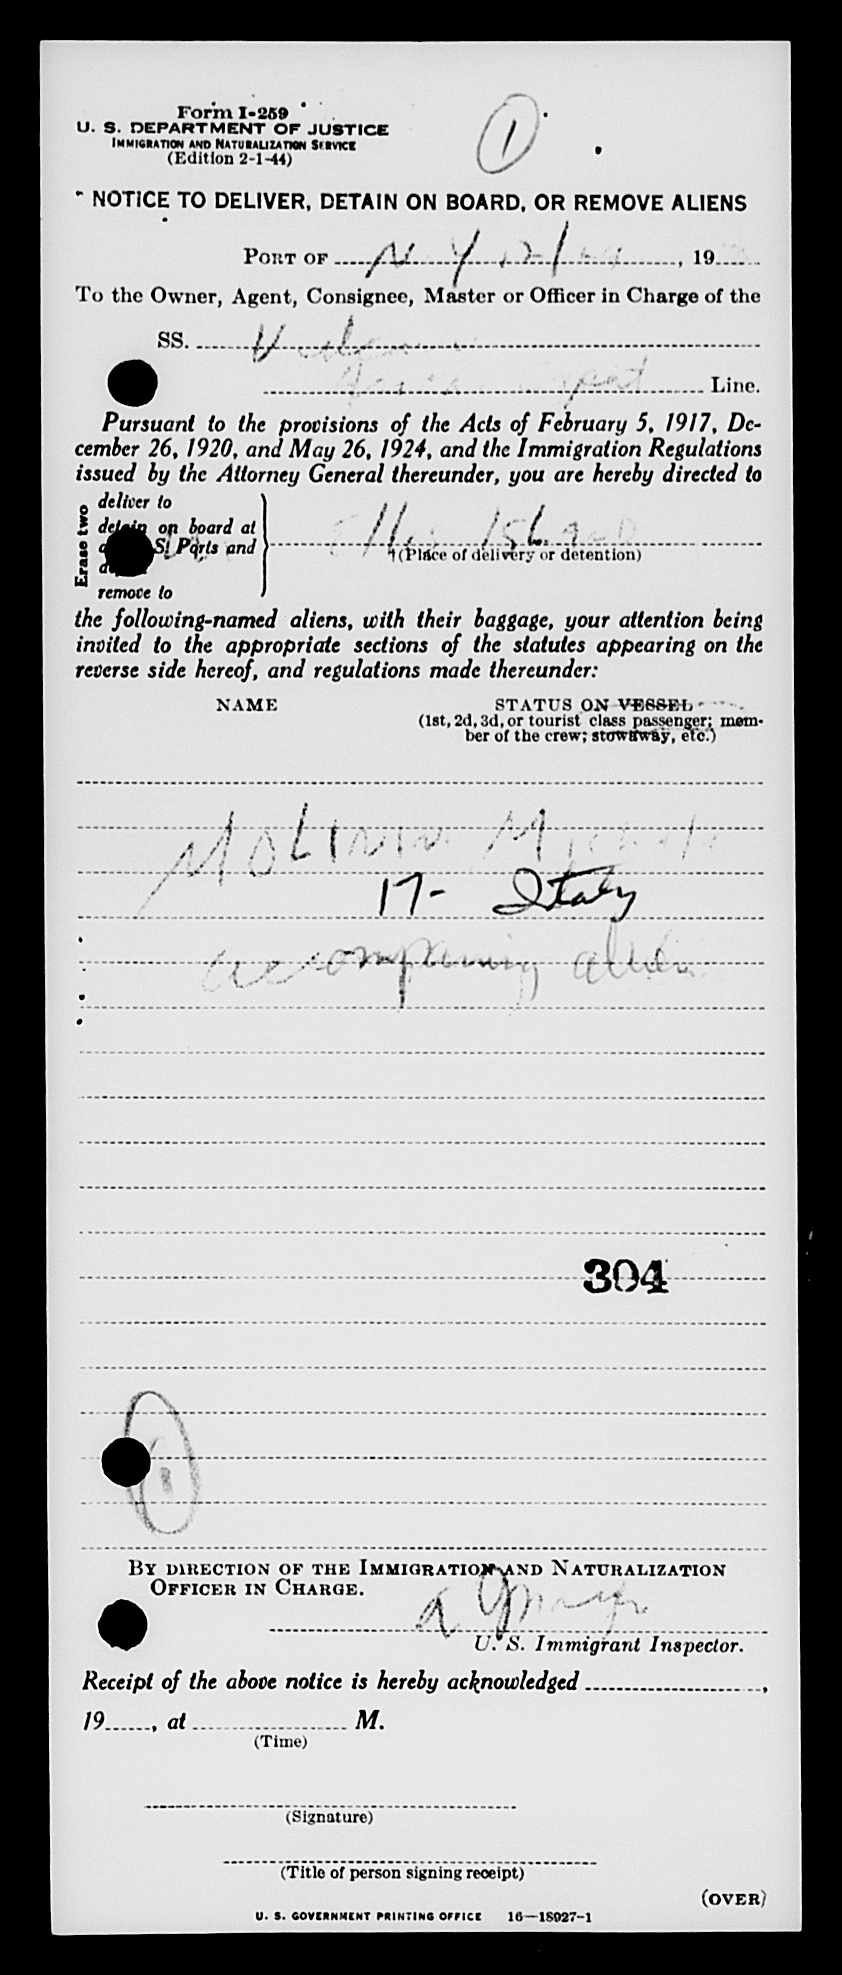 Form I-259
U. S. DEPARTMENT OF JUSTICE
IMMIGRATION AND NATURALIZATION SERVICE
(Edition 2-1-44)
1
NOTICE TO DELIVER, DETAIN ON BOARD, OR REMOVE ALIENS
PORT OF N Y , 19
To the Owner, Agent, Consignee, Master or Officer in Charge of the
SS.
Line.
Pursuant to the provisions of the Acts of February 5, 1917, De-
cember 26, 1920, and May 26, 1924, and the Immigration Regulations
issued by the Attorney General thereunder, you are hereby directed to
Erase two
deliver to
detain on board at
Ports and
remove to
Ellis Island
(Place of delivery or detention)
the following-named aliens, with their baggage, your attention being
invited to the appropriate sections of the statutes appearing on the
reverse side hereof, and regulations made thereunder:
NAME STATUS ON VESSEL
(1st, 2d, 3d, or tourist class passenger; mem-
ber of the crew; stowaway, etc.)
17- Italy
accompaning alien
304
BY DIRECTION OF THE IMMIGRATION AND NATURALIZATION
OFFICER IN CHARGE.
U. S. Immigrant Inspector.
Receipt of the above notice is hereby acknowledged ,
19 , at M.
(Time)
(Signature)
(Title of person signing receipt)
(OVER)
U. S. GOVERNMENT PRINTING OFFICE 16—18027-1